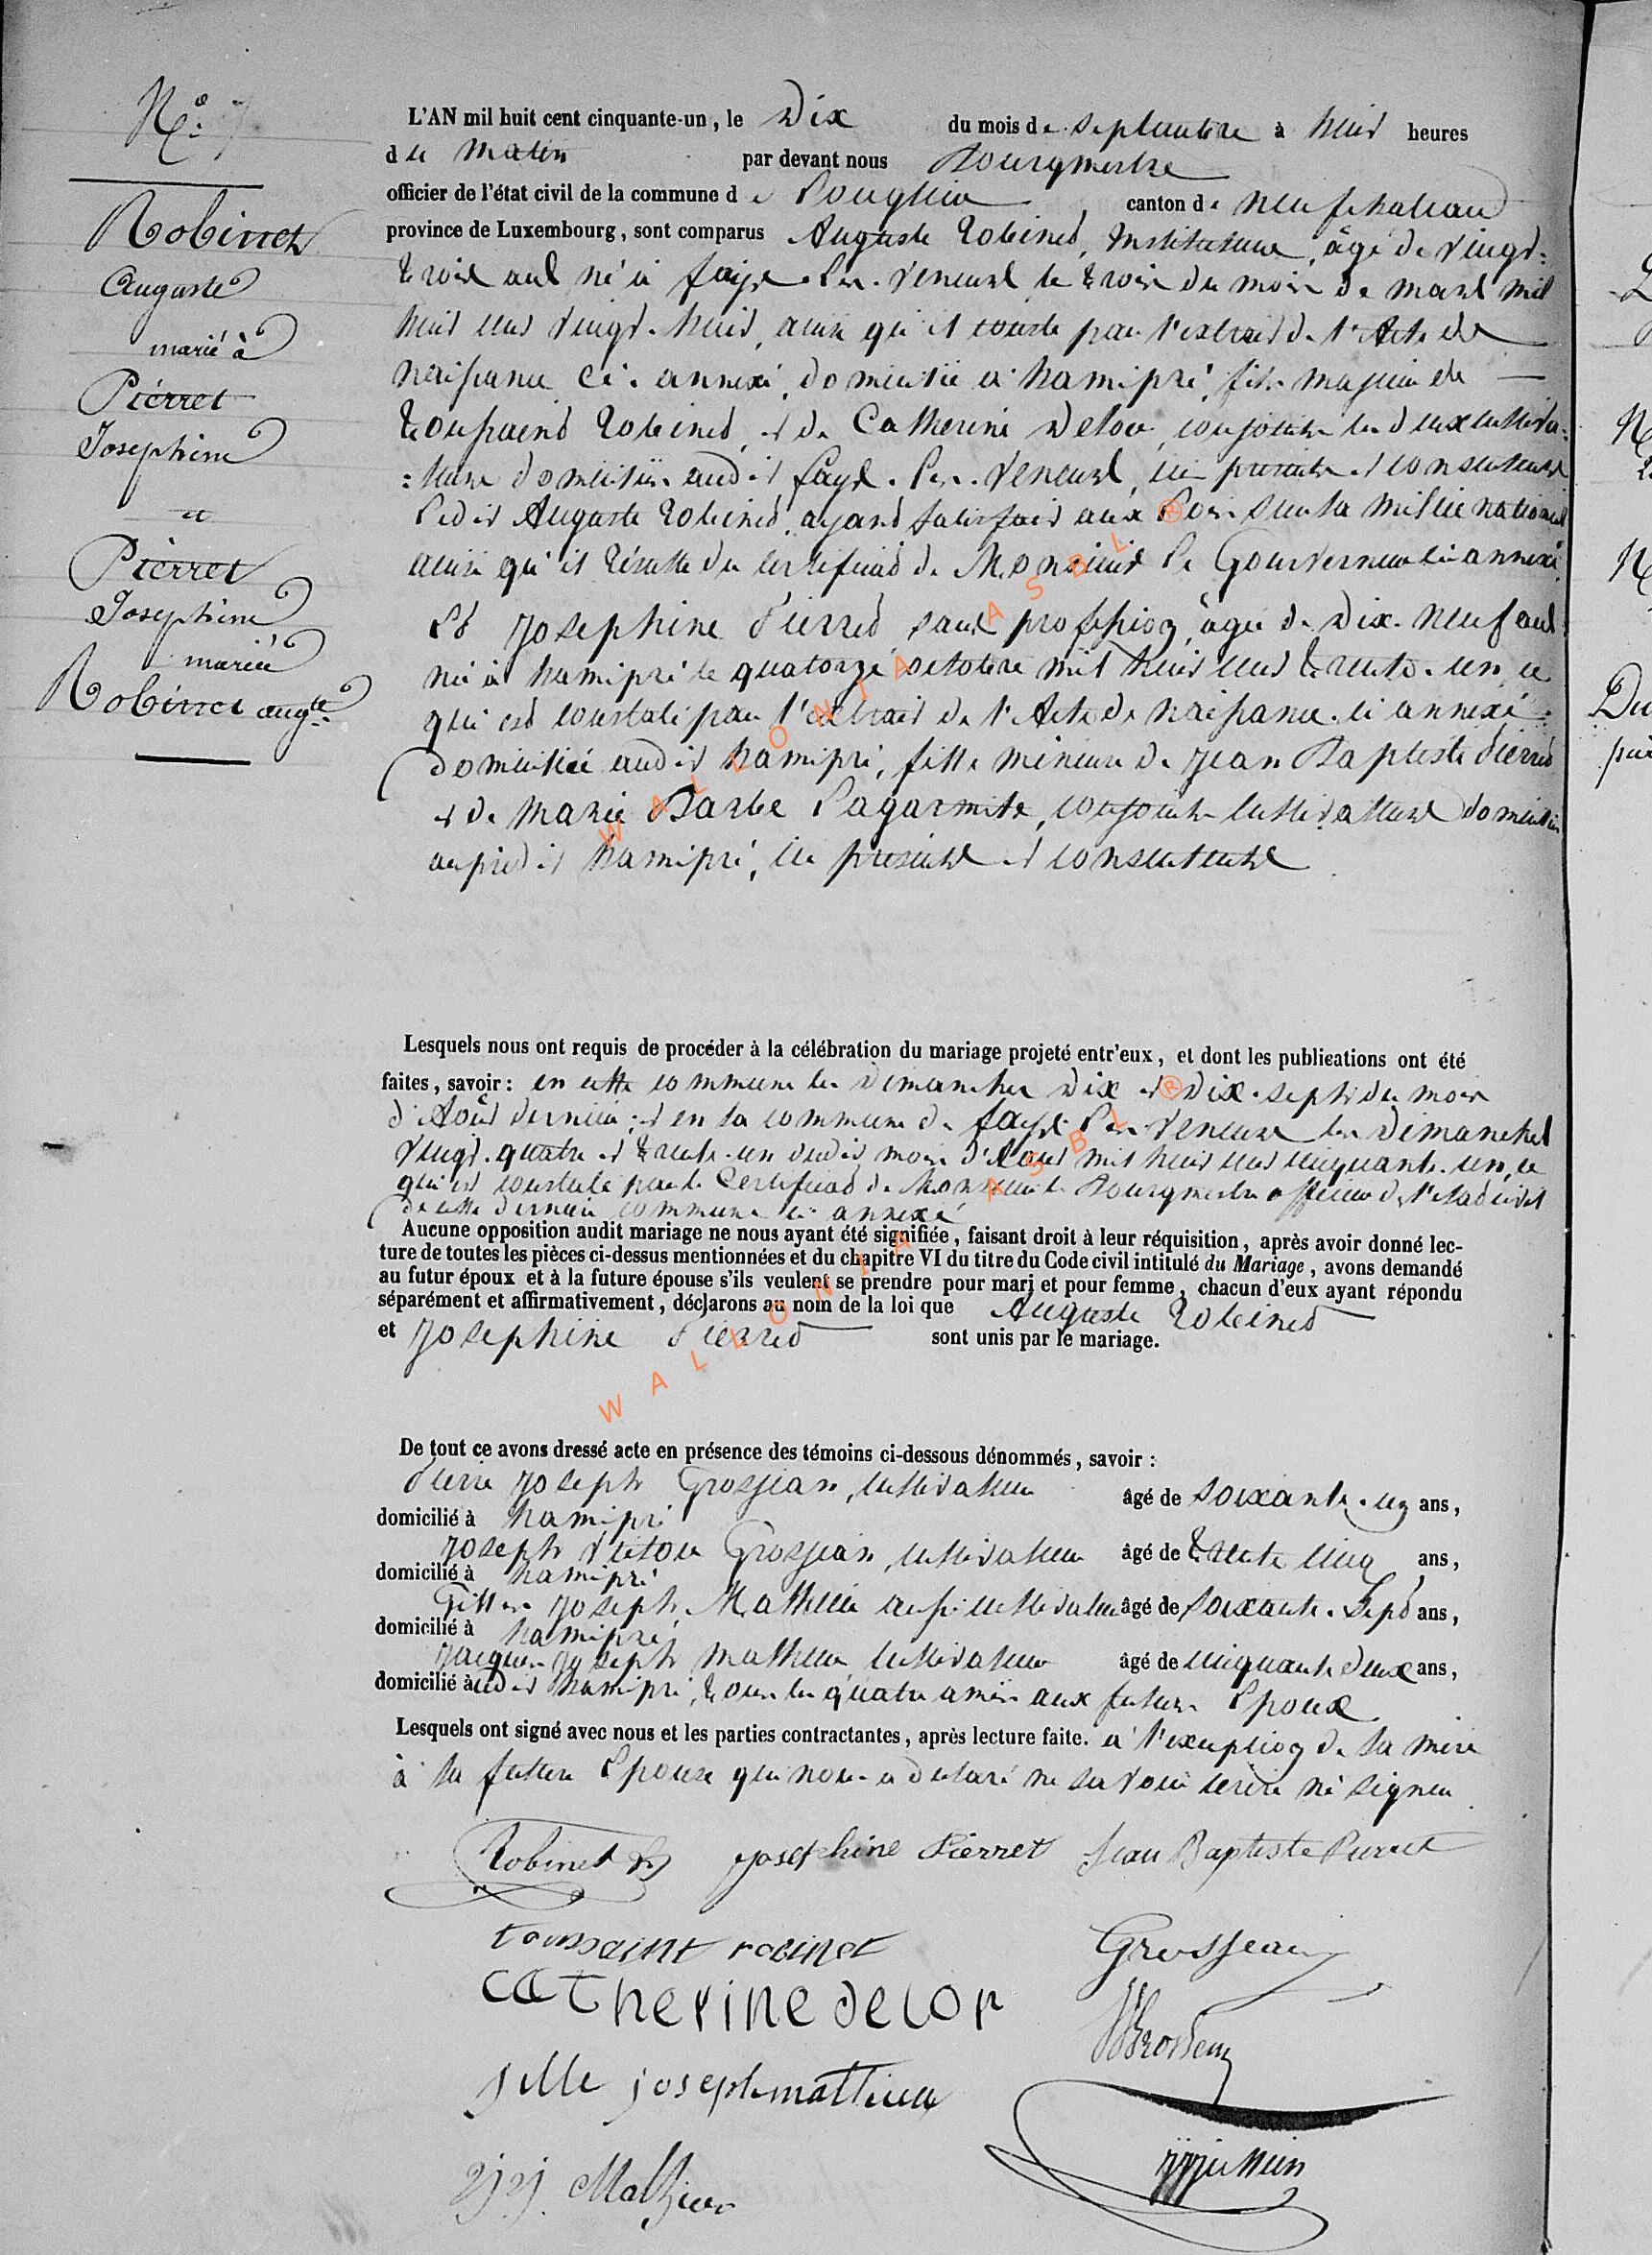 N.º 7
Robinet
Auguste
marié à
Pierret
Josephine
et
Pierret
Josephine
mariée
Robinet augte
L'AN mil huit cent cinquante-un, le Dix du mois de septembre à huit heures
du matin par devant nous Bourgmestre
officier de l'état civil de la commune de Longlier canton de neufchateau
province de Luxembourg, sont comparus Auguste Robinet, Instituteur, âgé de vingt-
trois ans né à fays-les-veneurs le trois du mois de mars mil
huit cent vingt-huit, ainsi qu'il conste par l'extrait de l'Acte de
naissance ci-annexé, domicilié à hamipré, fils majeur de
toussaint Robinet et de Catherine Delor conjoints les deux cultiva-
:teurs domiciliés audit fays-les-veneurs, ici présents et consentants
Ledit Auguste Robinet, ayant satisfait aux Lois sur la milice nationale
ainsi qu'il résulte du certificat de Monsieur Le Gouverneur ci annexé.
Et Josephine Pierret sans profession, âgée de Dix-neuf ans
née à hamipré le quatorze octobre mil huit cent trente-un, ce
qui est constaté par l'extrait de l'Acte de naissance ci annexé
domiciliée audit hamipré, fille mineure de Jean Baptiste Pierret
et de Marie Barbe Lagarmite, conjoints cultivateurs domiciliés
au prédit hamipré, ici présents et consentants
Lesquels nous ont requis de procéder à la célébration du mariage projeté entr'eux, et dont les publications ont été
faites, savoir: en cette commune les Dimanches Dix et Dix-sept du mois
d'Août dernier; et en la commune de fays-les-veneurs les Dimanches
vingt-quatre et trente-un dudit mois d'Août mil huit cent cinquante-un, ce
qui est constaté par le Certificat de Monsieur le Bourgmestre officier de l'état civil
de cette dernière commune ci annexé
Aucune opposition audit mariage ne nous ayant été signifiée, faisant droit à leur réquisition, après avoir donné lec-
ture de toutes les pièces ci-dessus mentionnées et du chapitre VI du titre du Code civil intitulé du Mariage, avons demandé
au futur époux et à la future épouse s'ils veulent se prendre pour mari et pour femme, chacun d'eux ayant répondu
séparément et affirmativement, déclarons au nom de la loi que Auguste Robinet
et Josephine Pierret sont unis par le mariage.
De tout ce avons dressé acte en présence des témoins ci-dessous dénommés, savoir:
Pierre Joseph Grosjean, cultivateur âgé de soixante-un ans,
domicilié à hamipré
Joseph Victor Grosjean, cultivateur âgé de trente cinq ans,
domicilié à hamipré
Gilles Joseph Mathieu aussi cultivateur âgé de soixante-Sept ans,
domicilié à hamipré
Jacques Joseph mathieu cultivateur âgé de cinquante deux ans,
domicilié audit hamipré, tous les quatre amis aux futurs Epoux
Lesquels ont signé avec nous et les parties contractantes, après lecture faite. à l'exception de la mère
à la future Epouse qui nous a déclaré ne savoir écrire ni signer
Robinet Josephine Pierret Jean Baptiste Pierret
toussaint robinet Grosjean
catherine delor
JVGrosjean
jille joseph mathieu
J j. Mathieu
WALLONIA ASBL ®
WALLONIA ASBL ®